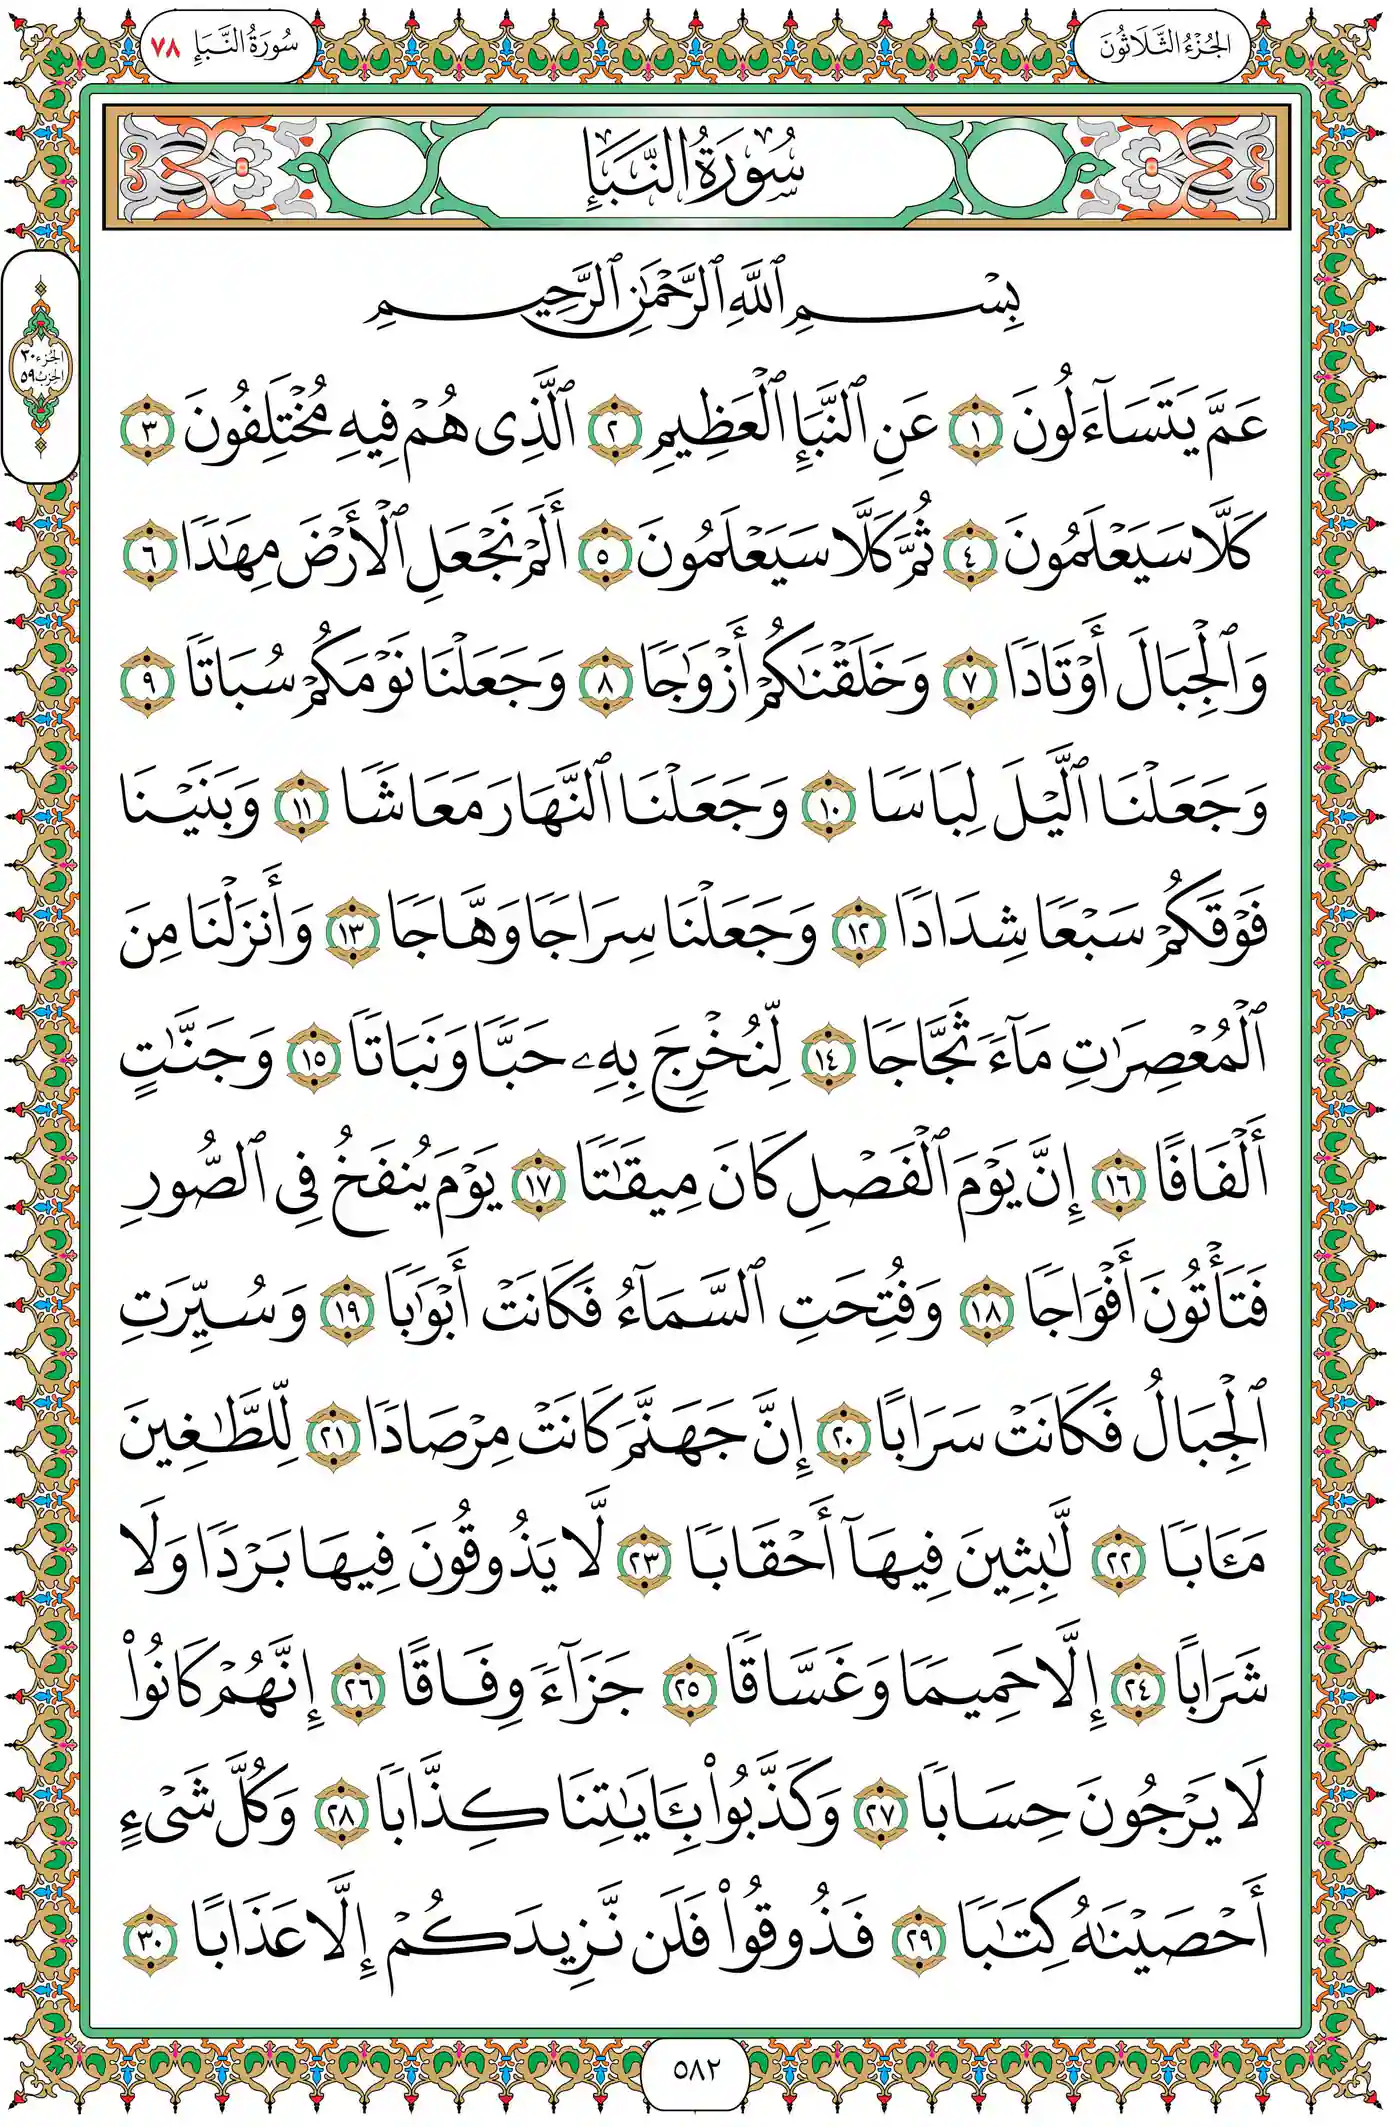 الجُزْءُ الثَّلَاثُونَ
سُورَةُ النَّبَإِ ٧٨
سُورَةُ النَّبَإِ
الجزء ٣٠
الحزب ٥٩
بِسْمِ ٱللَّهِ ٱلرَّحْمَٰنِ ٱلرَّحِيمِ
عَمَّ يَتَسَآءَلُونَ ١ عَنِ ٱلنَّبَإِ ٱلْعَظِيمِ ٢ ٱلَّذِى هُمْ فِيهِ مُخْتَلِفُونَ ٣
كَلَّا سَيَعْلَمُونَ ٤ ثُمَّ كَلَّا سَيَعْلَمُونَ ٥ أَلَمْ نَجْعَلِ ٱلْأَرْضَ مِهَٰدًا ٦
وَٱلْجِبَالَ أَوْتَادًا ٧ وَخَلَقْنَٰكُمْ أَزْوَٰجًا ٨ وَجَعَلْنَا نَوْمَكُمْ سُبَاتًا ٩
وَجَعَلْنَا ٱلَّيْلَ لِبَاسًا ١٠ وَجَعَلْنَا ٱلنَّهَارَ مَعَاشًا ١١ وَبَنَيْنَا
فَوْقَكُمْ سَبْعًا شِدَادًا ١٢ وَجَعَلْنَا سِرَاجًا وَهَّاجًا ١٣ وَأَنزَلْنَا مِنَ
ٱلْمُعْصِرَٰتِ مَآءً ثَجَّاجًا ١٤ لِّنُخْرِجَ بِهِۦ حَبًّا وَنَبَاتًا ١٥ وَجَنَّٰتٍ
أَلْفَافًا ١٦ إِنَّ يَوْمَ ٱلْفَصْلِ كَانَ مِيقَٰتًا ١٧ يَوْمَ يُنفَخُ فِى ٱلصُّورِ
فَتَأْتُونَ أَفْوَاجًا ١٨ وَفُتِحَتِ ٱلسَّمَآءُ فَكَانَتْ أَبْوَٰبًا ١٩ وَسُيِّرَتِ
ٱلْجِبَالُ فَكَانَتْ سَرَابًا ٢٠ إِنَّ جَهَنَّمَ كَانَتْ مِرْصَادًا ٢١ لِّلطَّٰغِينَ
مَـَٔابًا ٢٢ لَّٰبِثِينَ فِيهَآ أَحْقَابًا ٢٣ لَّا يَذُوقُونَ فِيهَا بَرْدًا وَلَا
شَرَابًا ٢٤ إِلَّا حَمِيمًا وَغَسَّاقًا ٢٥ جَزَآءً وِفَاقًا ٢٦ إِنَّهُمْ كَانُوا۟
لَا يَرْجُونَ حِسَابًا ٢٧ وَكَذَّبُوا۟ بِـَٔايَٰتِنَا كِذَّابًا ٢٨ وَكُلَّ شَىْءٍ
أَحْصَيْنَٰهُ كِتَٰبًا ٢٩ فَذُوقُوا۟ فَلَن نَّزِيدَكُمْ إِلَّا عَذَابًا ٣٠
٥٨٢